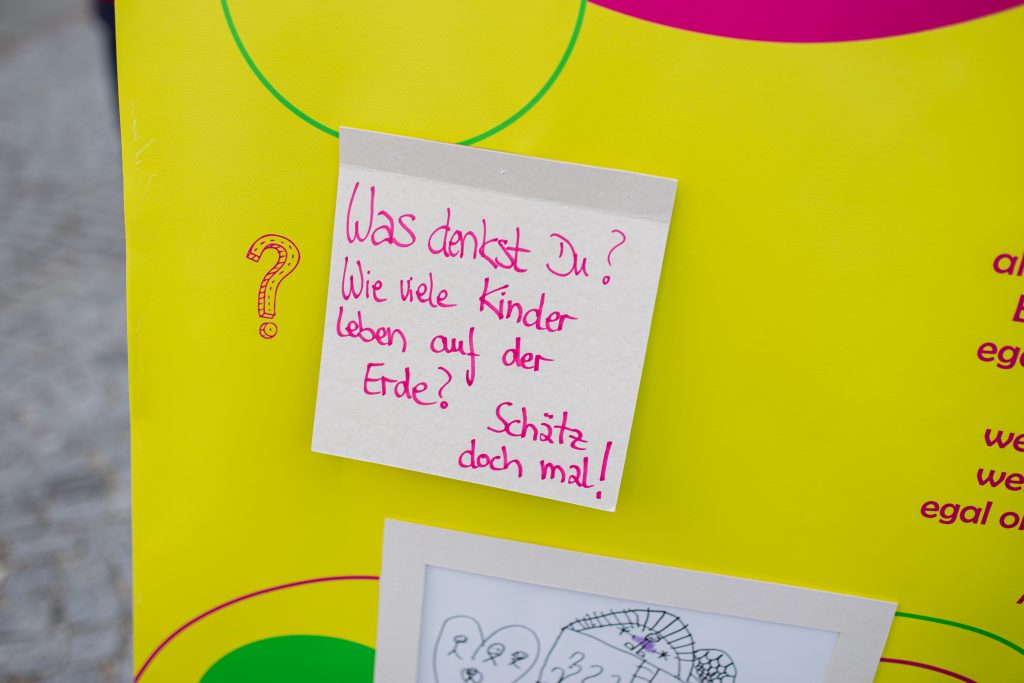 Was denkst Du?
Wie viele Kinder
leben auf der
Erde?
Schätz
doch mal!
egal